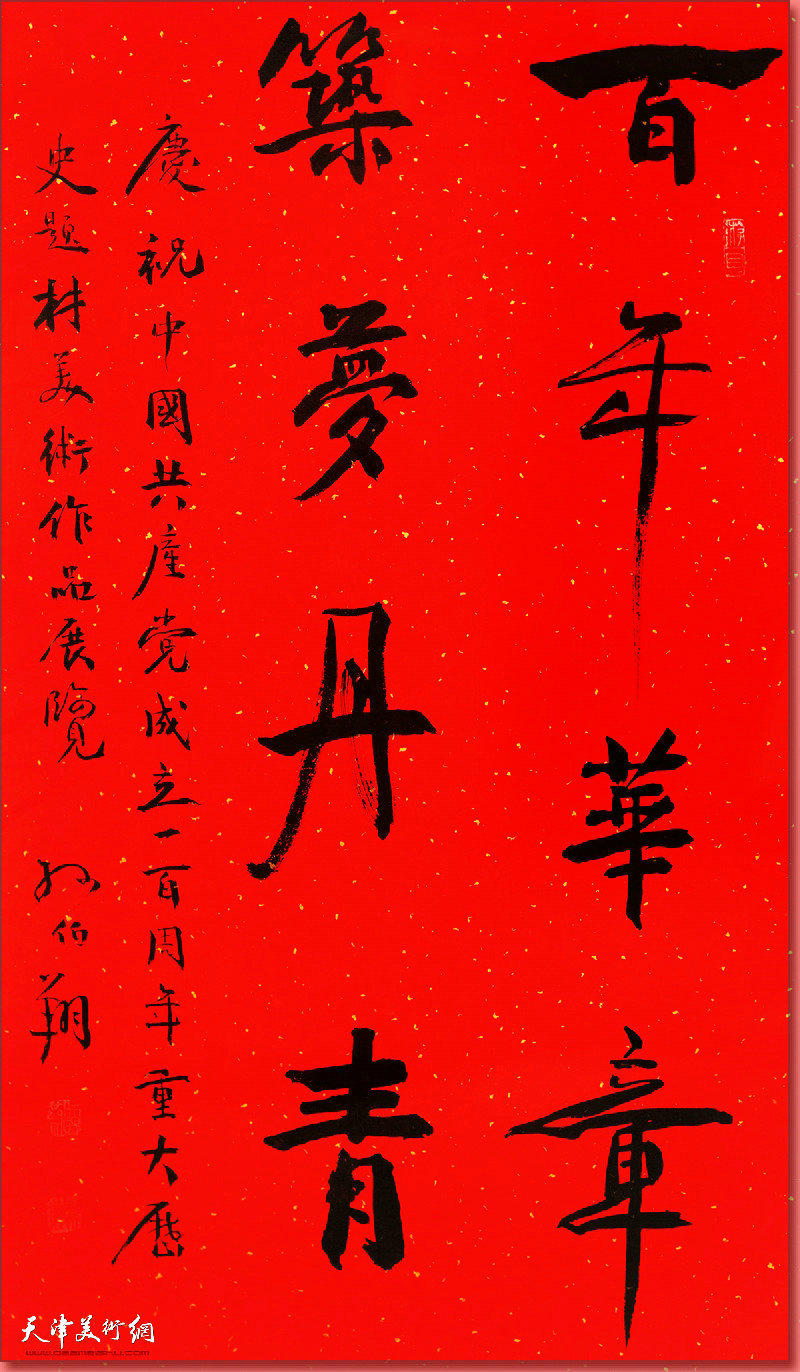 百年華章
築夢丹青
慶祝中國共產党成立一百周年重大歷
史題材美術作品展覽 孫伯翔
天津美術網